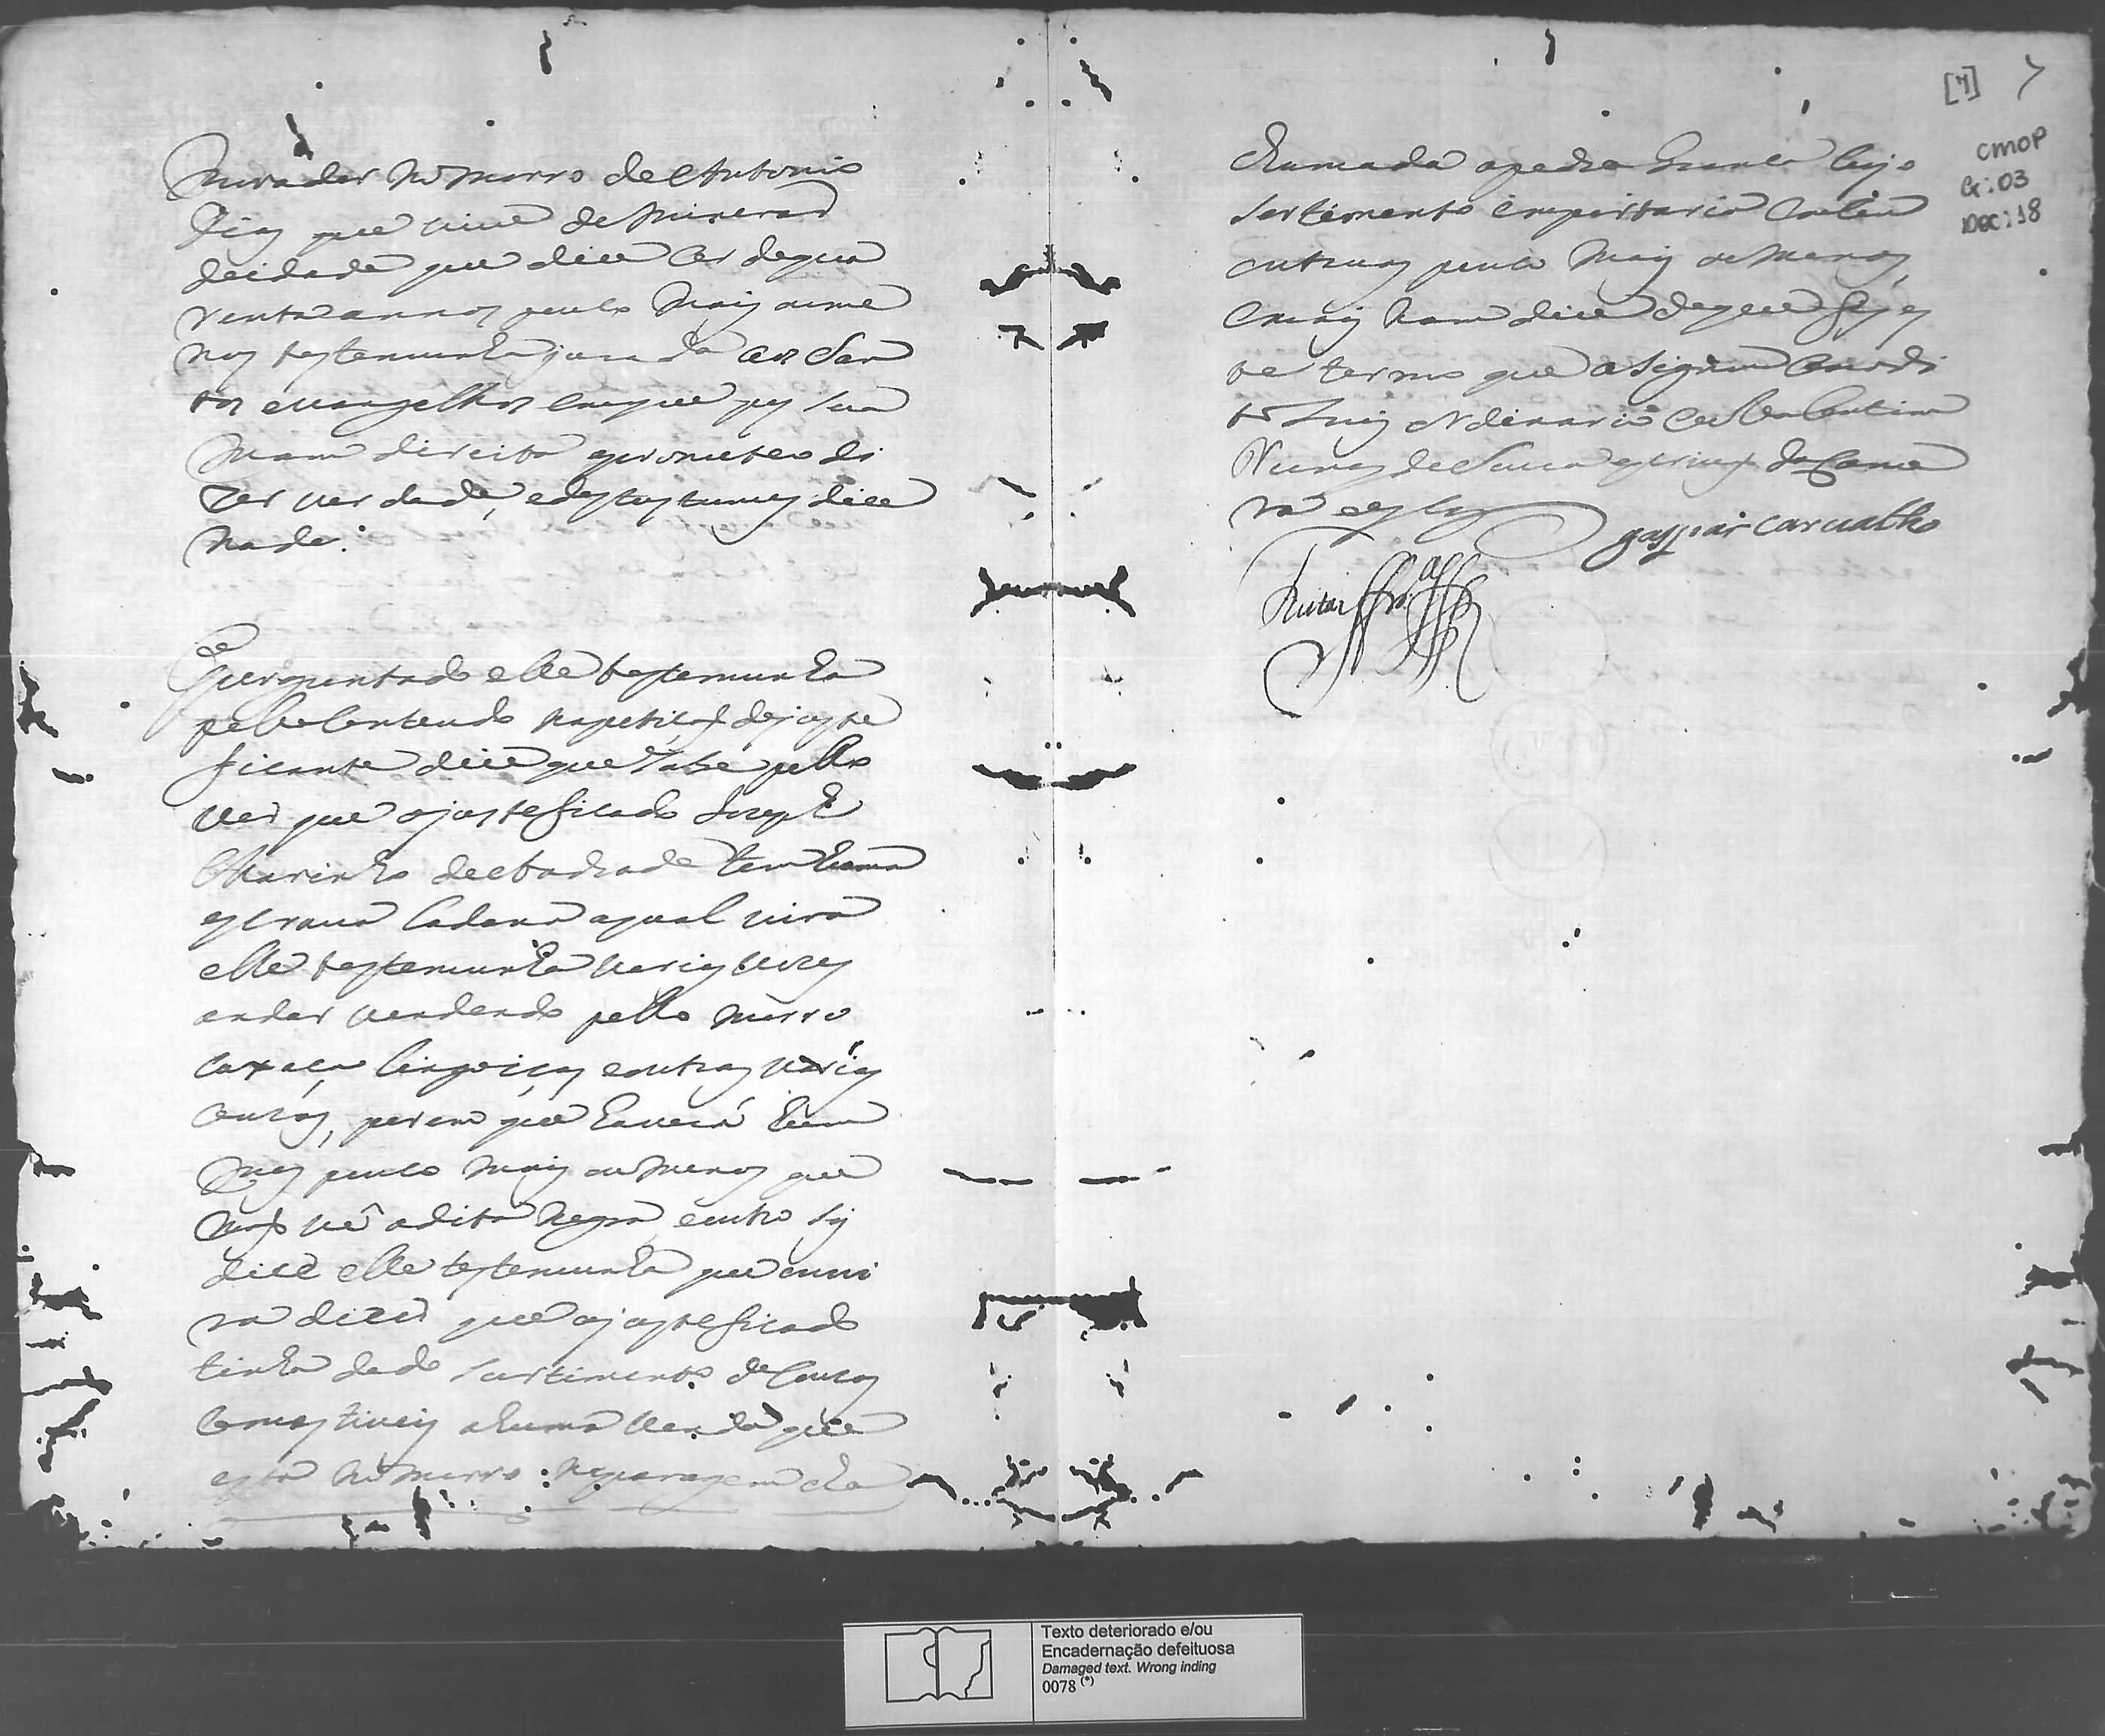 Morador no morro de Antonio
Dias que vive de minerar
deidade que dice ser de qua
renta annos pouco mais ou me
nos testemunha jurada aos San
tos evangelhos em que pos sua
mam direita e prometeo di
zer verdade, e do costume dice
nada.
E perguntado elle testemunha
pello conteudo na petição do juste
ficante dice que sabe pello
ver que o justeficado Joseph
Marinho de Andrade tem huma
escrava ladana a qual vira
elle testemunha varias vezes
andar vendendo pello morro
caxaça, lingoiças e outras varias
couzas, porem que haverá hum
mes pouco mais ou menos que
não vê a dita negra, e outro sy
dice elle testemunha que ouvi
ra dizer que o justeficado
tinha dado surtimento de couzas
comestiveis a huma venda que
esta no morro: na paragem cha
[7] 7
CMOP
Cx: 03
DOC: 18
chamada a pedra branca cujo
sortimento importaria em cem
outavas pouco mais ou menos
e mais nam dice de que fis es
te termo que asignou com o di
to Juis ordinario eu Valentim
Nunes de Souza escrivão da Came
ra o escrevy
gaspar carvalho
Texto deteriorado e/ou
Encadernação defeituosa
Damaged text. Wrong inding
0078 (*)